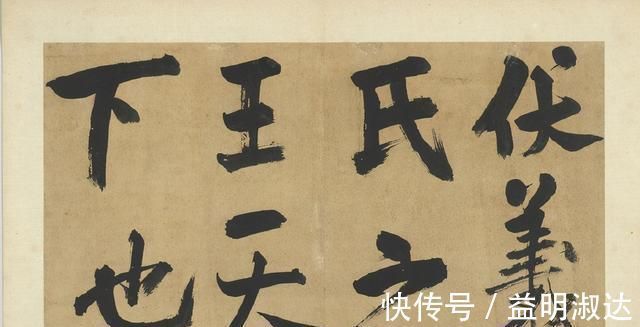 伏羲
氏之
王天
下也
快传号／益明淑达